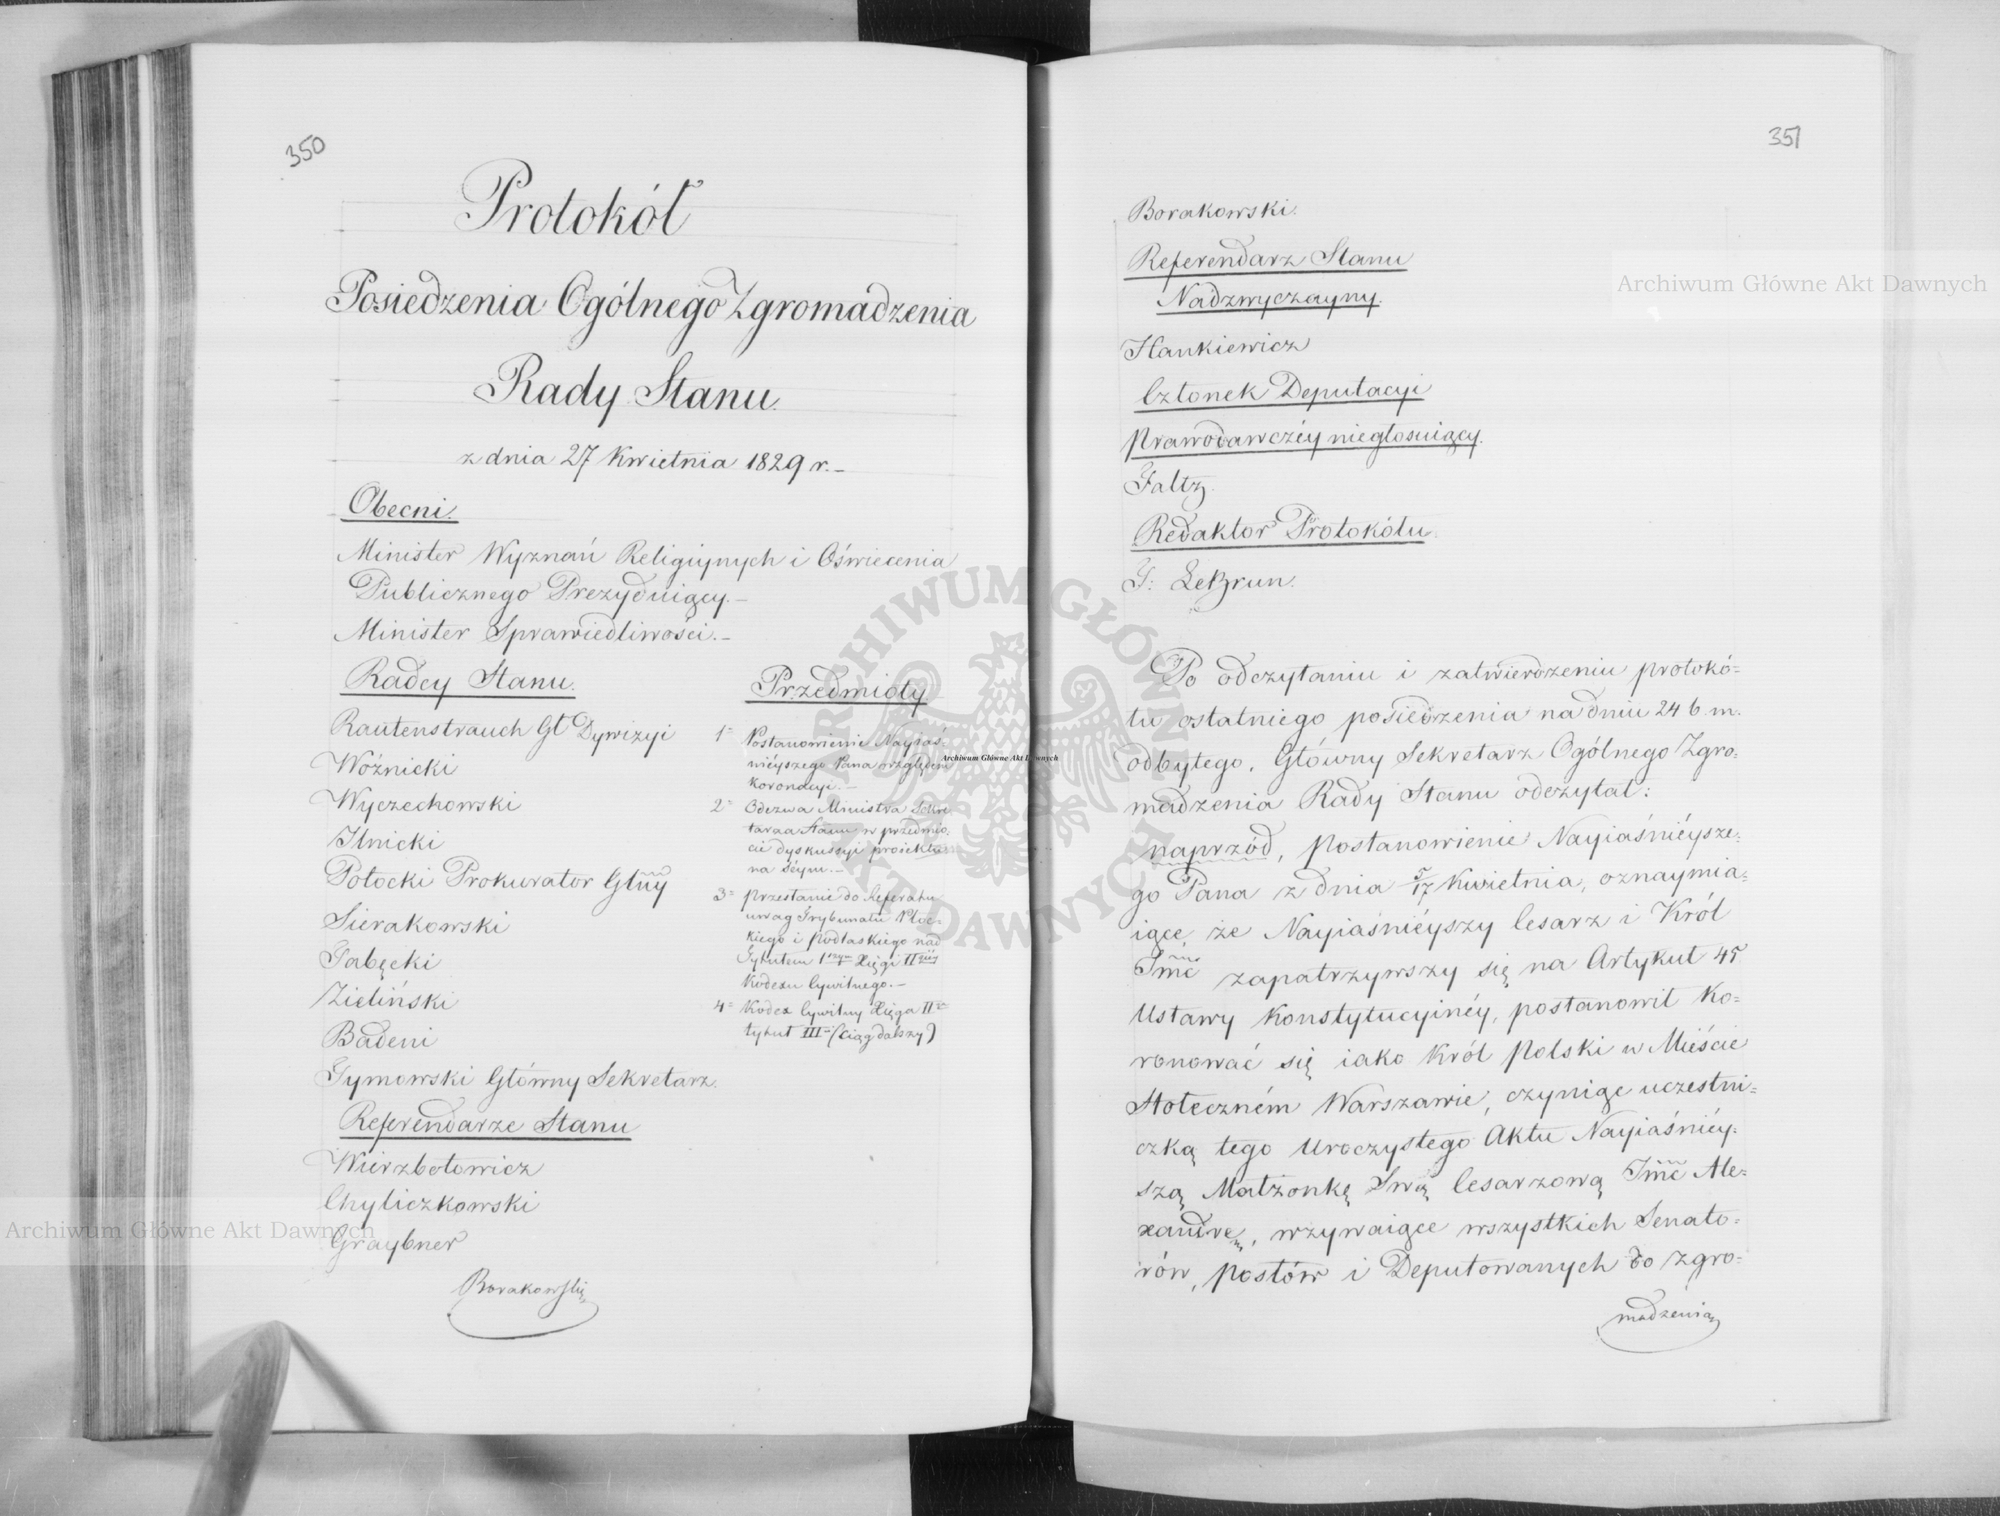 350
Protokół
Posiedzenia Ogólnego Zgromadzenia
Rady Stanu.
z dnia 27 Kwietnia 1829 r. –
Obecni.
Minister Wyznań Religiynych i Oświecenia
Publicznego Prezyduiący. –
Minister Sprawiedliwości. –
Radcy Stanu.
Rautenstrauch Gł Dywizyi
Woźnicki
Wyczechowski
Ilnicki
Potocki Prokurator Głny
Sierakowski
Gabęcki
Zieliński
Badeni
Tymowski Główny Sekretarz.
Referendarze Stanu
Wierzbołowicz
Chyliczkowski
Graybner
Borakowski
Przedmioty
1= Postanowienie Nayiaś-
nieyszego Pana względem
koronacyi. –
2= Odezwa Ministra Sekre-
tarza Stanu w przedmio-
cie dyskussyi proiektu
na Séym. –
3= Przesłanie do Referatu
uwag Trybunału Płoc-
kiego i Podlaskiego nad
Tytułem 1szym Xięgi IIgiéy
Kodexu Cywilnego. –
4= Kodex Cywilny Xięga II=
tytuł III= (ciąg dalszy)
351
Borakowski.
Referendarz Stanu
Nadzwyczayny.
Hankiewicz
Członek Deputacyi
Prawodawczéy niegłosuiący.
Faltz.
Redaktor Protokółu.
F: LeBrun.
Po odczytaniu i zatwierdzeniu protokó-
łu ostatniego posiedzenia na dniu 24 b. m.
odbytego, Główny Sekretarz Ogólnego Zgro-
madzenia Rady Stanu odczytał:
naprzód, Postanowienie Nayiaśniéysze-
go Pana z dnia 5/17 Kwietnia, oznaymia-
iące, że Nayiaśniéyszy Cesarz i Król
Jmć zapatrzywszy się na Artykuł 45
Ustawy Konstytucyinéy, postanowił ko-
ronować się iako Król Polski w Mieście
Stołeczném Warszawie, czyniąc uczestni-
czką tego uroczystego Aktu Nayiaśniéy-
szą Małżonkę Swą Cesarzową Jmć Ale-
xandrę, wzywaiące wszystkich Senato-
rów, Posłów i Deputowanych do zgro-
madzenia
Archiwum Główne Akt Dawnych
Archiwum Główne Akt Dawnych
Archiwum Główne Akt Dawnych
ARCHIWUM GŁÓWNE AKT DAWNYCH